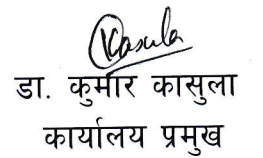 Kasula
डा. कुमार कासुला
कार्यालय प्रमुख